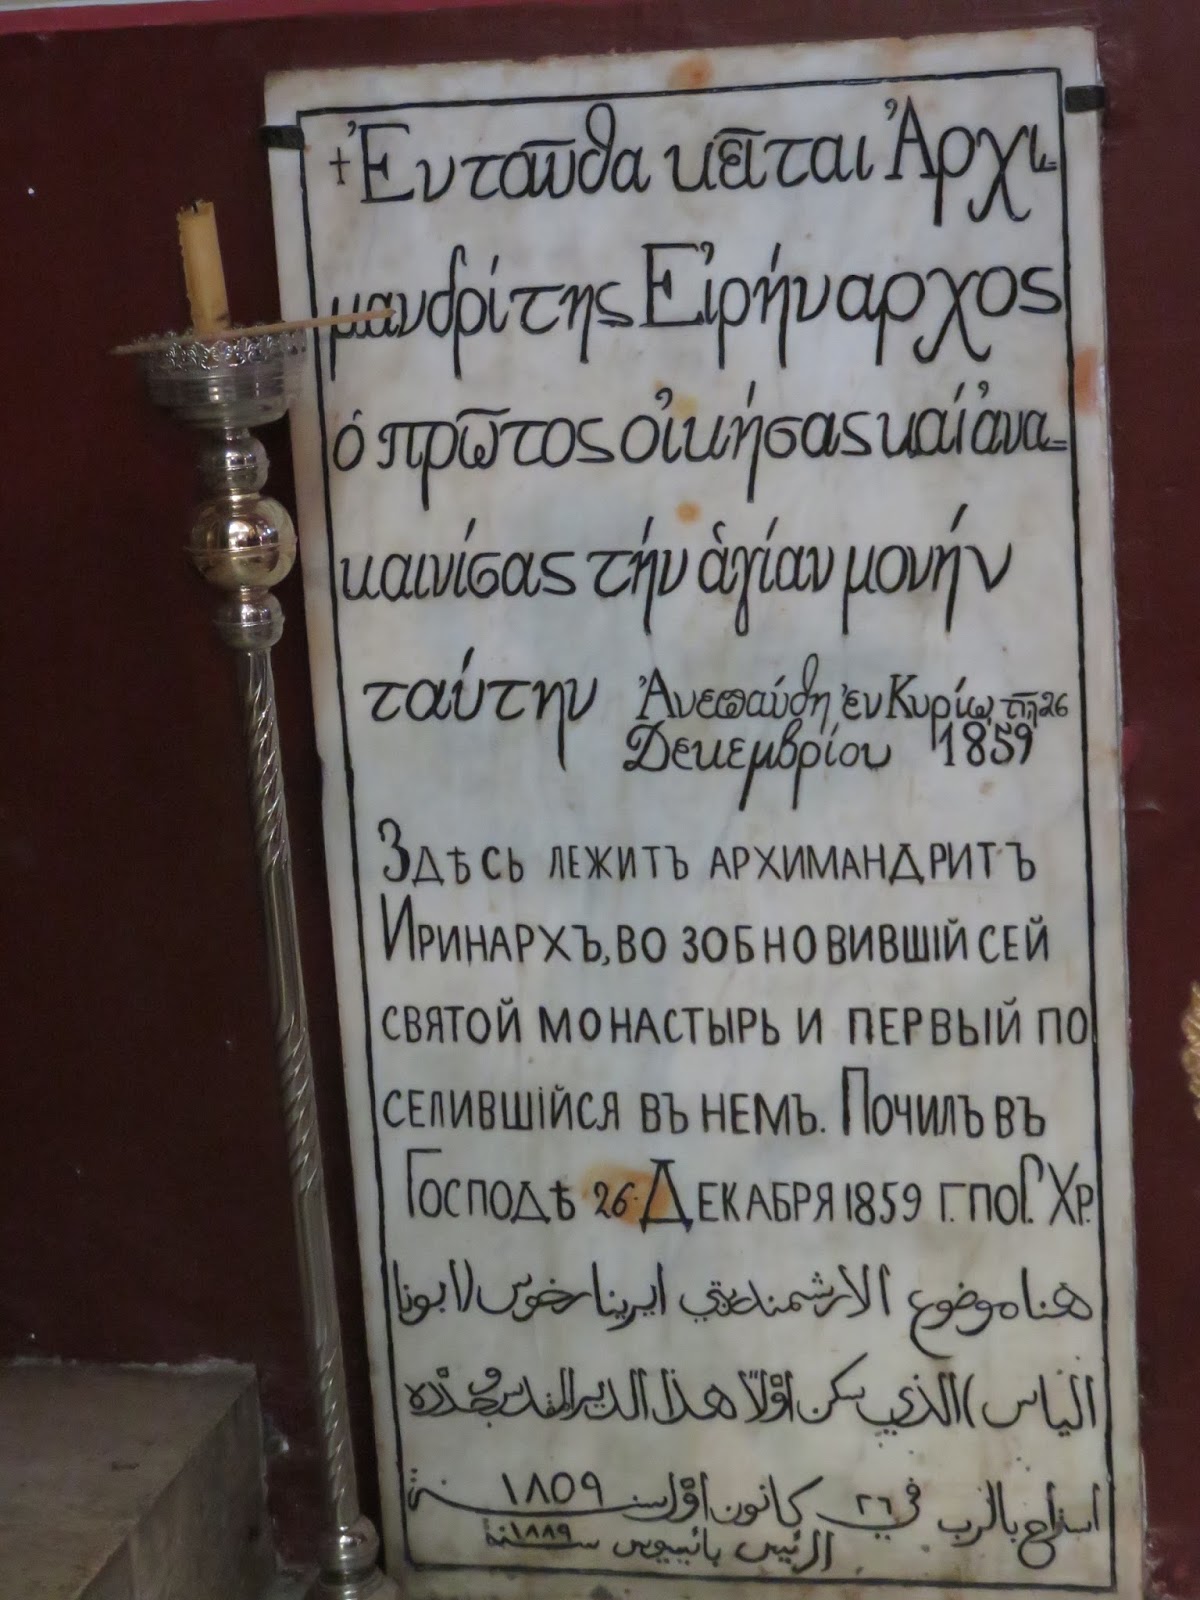 + Ἐνταῦθα κεῖται Ἀρχι=
μανδρίτης Εἰρήναρχος
ὁ πρῶτος οἰκήσας καί ἀνα=
καινίσας τήν ἁγίαν μονήν
ταύτην Ἀνεπαύθη ἐν Κυρίῳ τῇ 26
Δεκεμβρίου 1859
Здѣсь лежитъ архимандритъ
Иринархъ, возобновившій сей
святой монастырь и первый по
селившійся въ немъ. Почилъ въ
Господѣ 26 Декабря 1859 г. по Г. Хр.
هناه موضوع الارشمندريتي ايرينارخوس (ابونا
الياس) الذي سكن اوّلاً هذا الدير المقدس وجدّده
استراح بالرب في ٢٦ كانون اوّل سنة ١٨٥٩
الرئيس بائيسيوس سنة ١٨٨٩